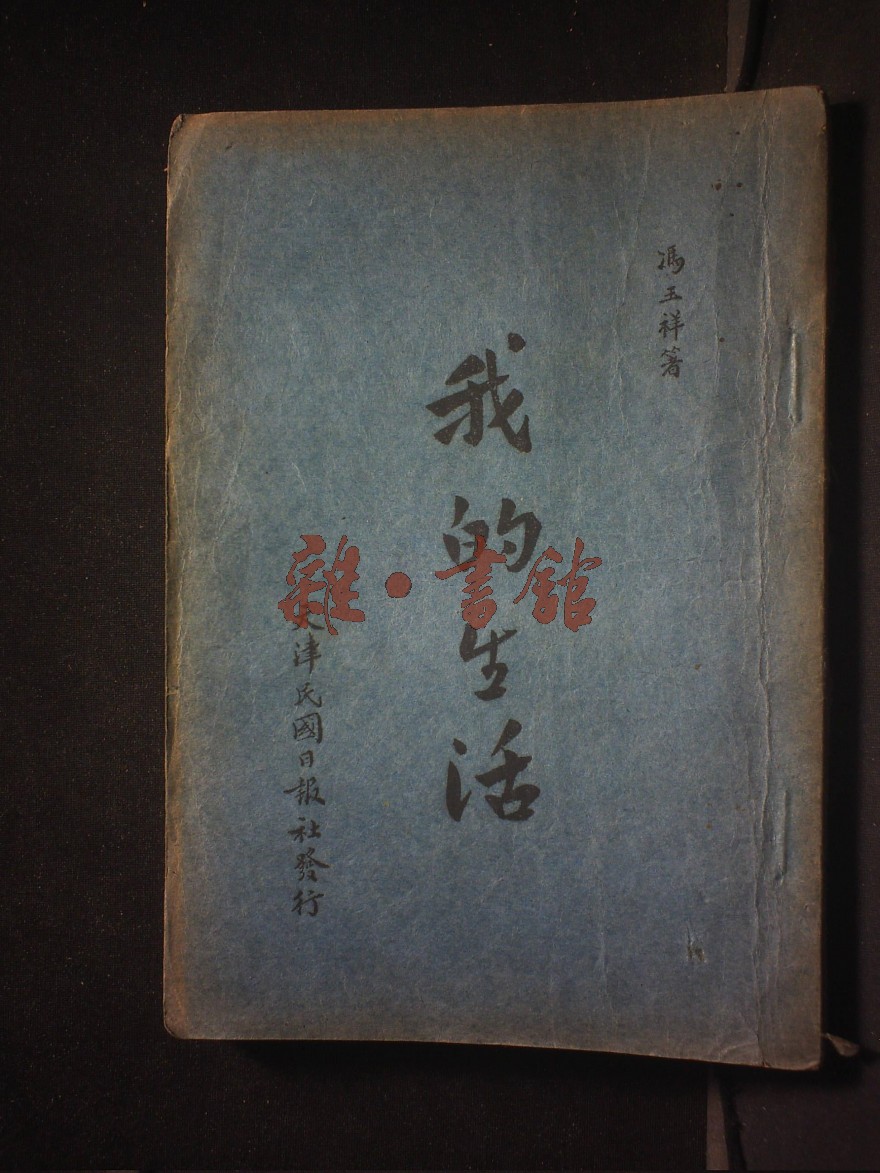 馮玉祥著
我的生活
天津民國日報社發行
雜·書館